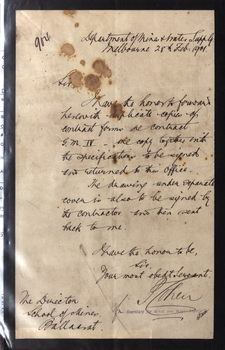 Department of Mines & Water Supply
Melbourne 28th Feb. 1901
Sir
I have the honor to forward
herewith duplicate copies of
contract forms re contract
one copy together with
the specifications to be signed
and returned to this office.
The drawing under separate
cover is also to be signed by
the contractor and then sent
back to me.
I have the honor to be,
Sir,
Your most obedt servant
The Director
School of Mines
Ballaarat